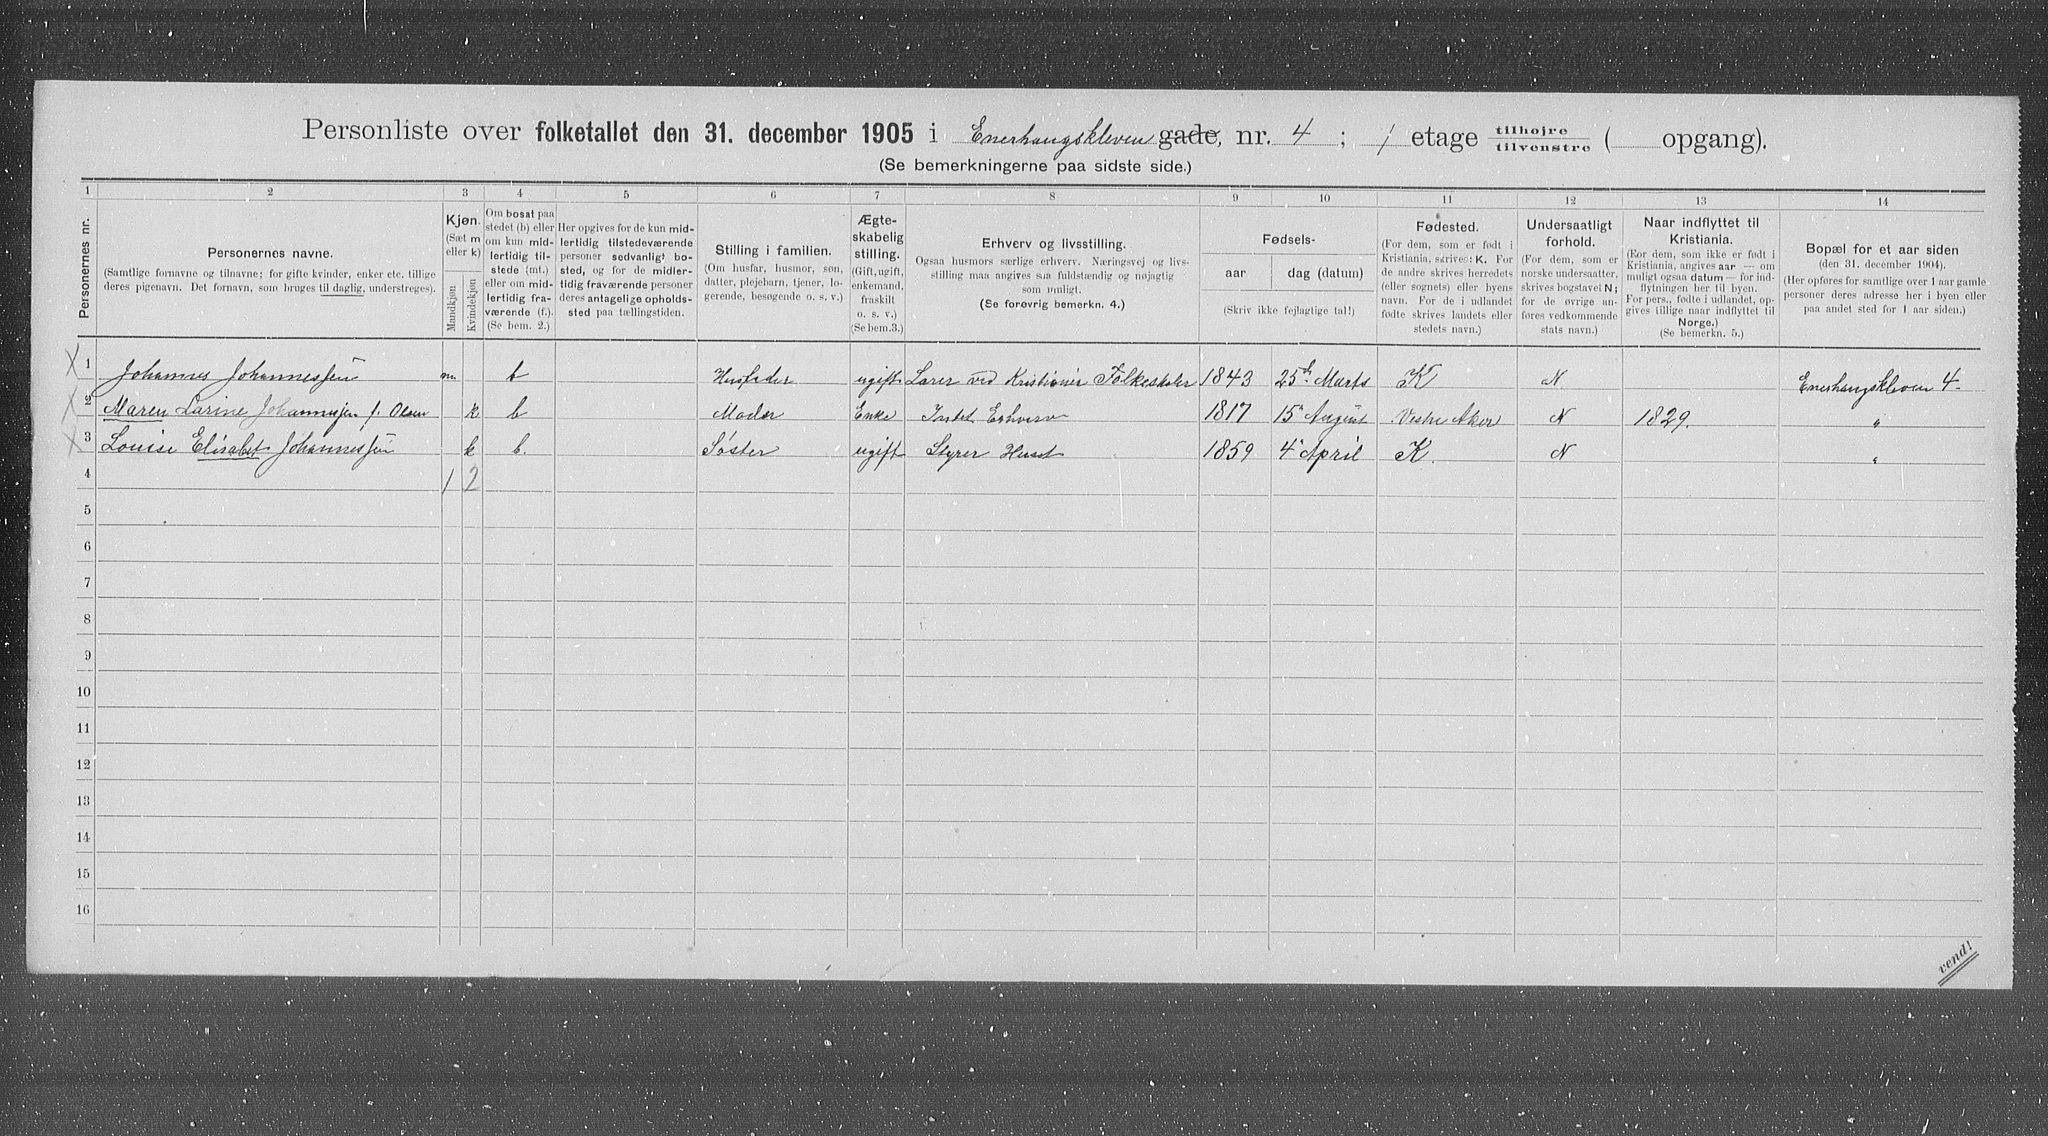 Personliste over folketallet den 31. december 1905 i Enerhaugskleven gade, nr. 4 ; 1 etage tilhøjre tilvenstre ( opgang).
(Se bemerkningerne paa sidste side.)
1 2 3 4 5 6 7 8 9 10 11 12 13 14
Personernes nr.
Personernes navne.
(Samtlige fornavne og tilnavne; for gifte kvinder, enker etc. tillige
deres pigenavn. Det fornavn, som bruges til daglig, understreges).
Kjøn.
(Sæt m
eller k)
Mandkjøn
Kvindekjøn
Om bosat paa
stedet (b) eller
om kun mid-
lertidig til-
stede (mt.)
eller om mid-
lertidig fra-
værende (f.).
(Se bem. 2.)
Her opgives for de kun mid-
lertidig tilstedeværende
personer sedvanlig bo-
sted, og for de midler-
tidig fraværende personer
deres antagelige opholds-
sted paa tællingstiden.
Stilling i familien.
(Om husfar, husmor, søn,
datter, plejebarn, tjener, lo-
gerende, besøgende o. s. v.)
Ægte-
skabelig
stilling.
(Gift, ugift,
enkemand,
fraskilt
o. s. v.)
(Se bem. 3.)
Erhverv og livsstilling.
Ogsaa husmors særlige erhverv. Næringsvej og livs-
stilling maa angives saa fuldstændig og nøjagtig
som muligt.
(Se forøvrig bemerkn. 4.)
Fødsels-
aar dag (datum)
(Skriv ikke fejlagtige tal!)
Fødested.
(For dem, som er født i
Kristiania, skrives: K. For
de andre skrives herredets
(eller sognets) eller byens
navn. For de i udlandet
fødte skrives landets eller
stedets navn.)
Undersaatligt
forhold.
(For dem, som er
norske undersaatter,
skrives bogstavet N;
for de øvrige an-
føres vedkommende
stats navn.)
Naar indflyttet til
Kristiania.
(For dem, som ikke er født i
Kristiania, angives aar — om
muligt ogsaa datum — for ind-
flytningen her til byen.
For pers., fødte i udlandet, op-
gives tillige naar indflyttet til
Norge.)
(Se bemerkn. 5.)
Bopæl for et aar siden
(den 31. december 1904).
(Her opføres for samtlige over 1 aar gamle
personer deres adresse her i byen eller
paa andet sted for 1 aar siden.)
X 1 Johannes Johannessen m. b Husfader ugift Lærer ved Kristiania Folkeskoler 1843 25de Marts K N Enerhaugskleven 4.
X 2 Maren Larine Johannessen f. Olsen k b Moder Enke Intet Erhverv 1817 15 August Vestre Aker N 1829. "
X 3 Louise Elisabet Johannessen k b. Søster ugift Styrer Huset 1859 4 April K. N "
4 1 2
5
6
7
8
9
10
11
12
13
14
15
16
vend!